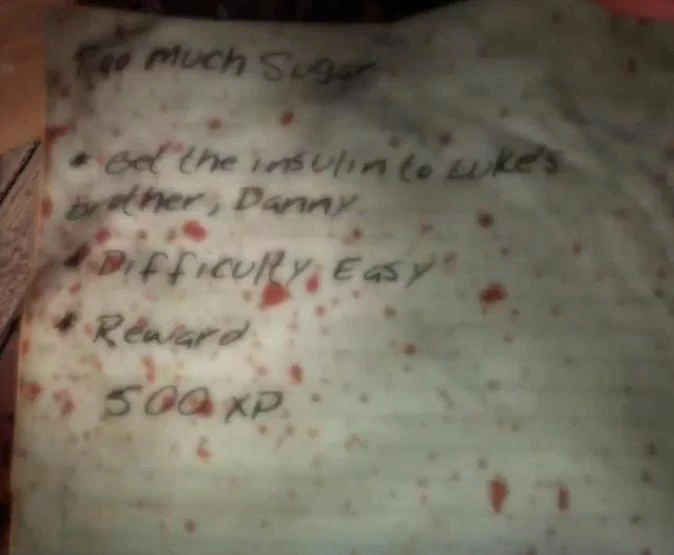 Too Much Sugar
* Get the insulin to Luke's
brother, Danny.
* Difficulty, Easy
* Reward
500 XP